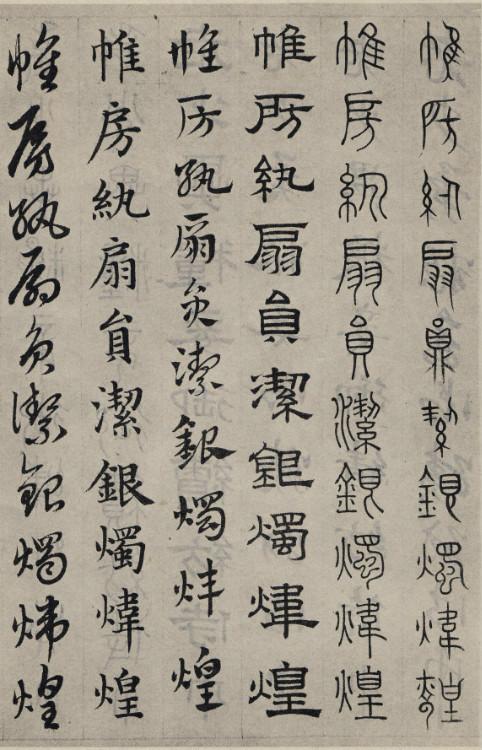 帷房紈扇員絜銀燭煒煌
帷房紈扇員潔銀燭煒煌
帷房紈扇員潔銀燭煒煌
帷房紈扇員潔銀燭煒煌
帷房紈扇員潔銀燭煒煌
帷房紈扇員潔銀燭煒煌